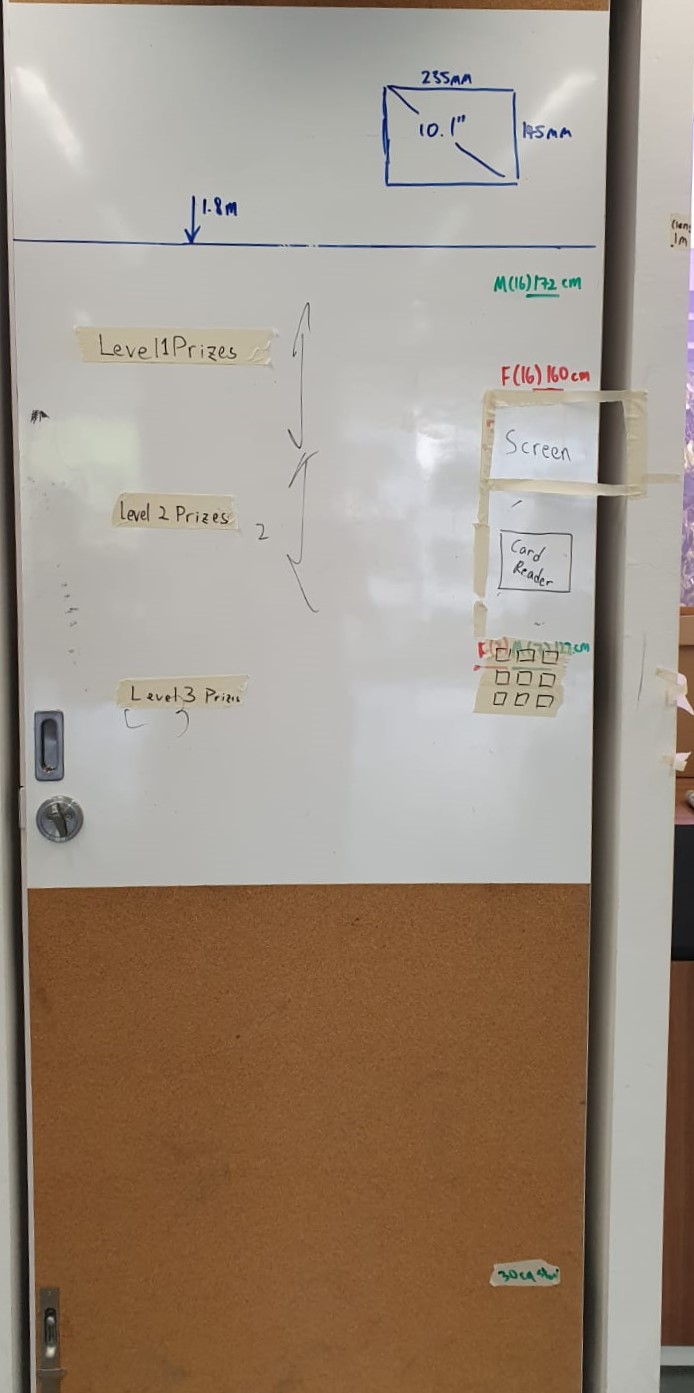 235mm
10.1"
145mm
1.8m
1m
M(16)172 cm
Level 1 Prizes
F(16) 160cm
Screen
Level 2 Prizes
2
Card
Reader
cm
Level 3 Prizes